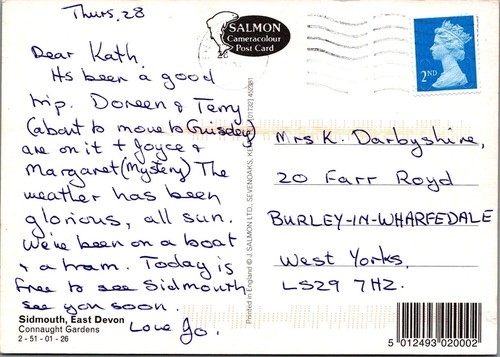 Thurs. 28
Dear Kath.
Its been a good
trip. Doreen & Terry
(about to move to Guisdey)
are on it + Joyce &
Margaret (Mystery) The
weather has been
glorious, all sun.
We've been on a boat
& a tram. Today is
free to see Sidmouth
see you soon.
Love Jo.
Sidmouth, East Devon
Connaught Gardens
2 - 51 - 01 - 26
SALMON
Cameracolour
Post Card
Printed in England © J. SALMON LTD., SEVENOAKS, KENT
2ND
Mrs K. Darbyshire,
20 Farr Royd
BURLEY-IN-WHARFEDALE
West Yorks,
LS29 7HZ.
5 012493 020002